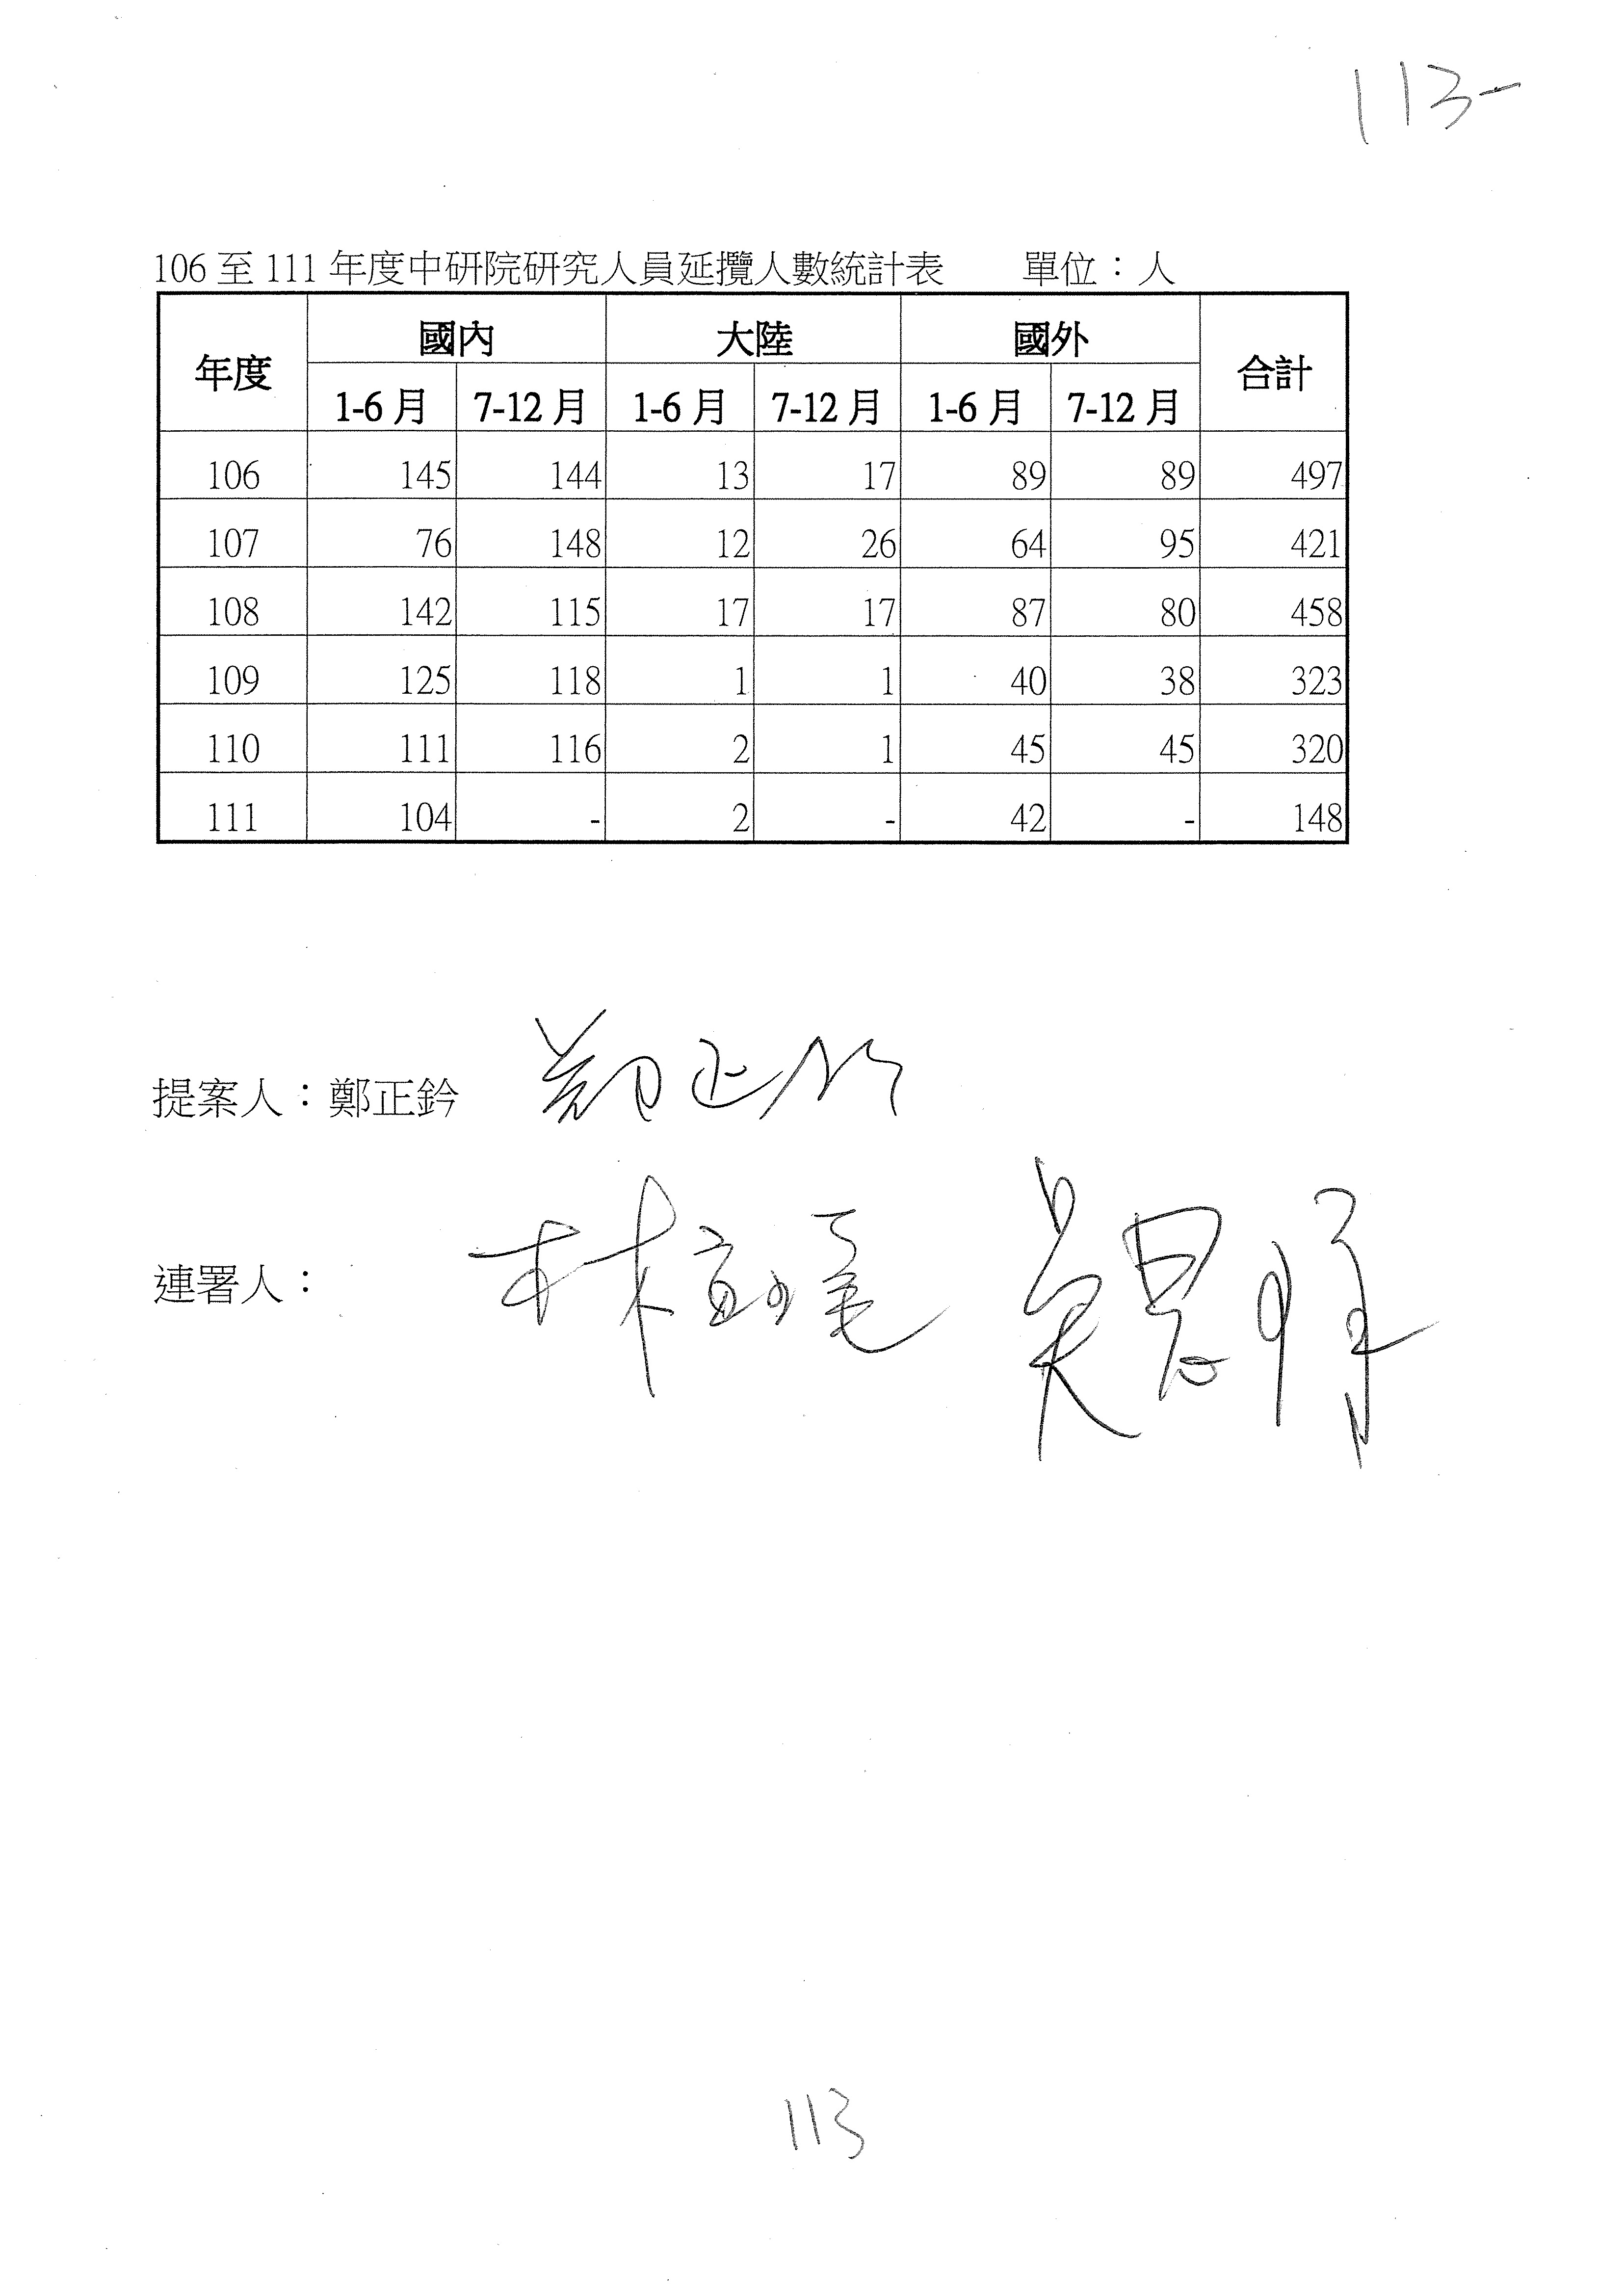 113-
106 至 111 年度中研院研究人員延攬人數統計表 單位：人
年度 國內 大陸 國外 合計
1-6 月 7-12 月 1-6 月 7-12 月 1-6 月 7-12 月
106 145 144 13 17 89 89 497
107 76 148 12 26 64 95 421
108 142 115 17 17 87 80 458
109 125 118 1 1 40 38 323
110 111 116 2 1 45 45 320
111 104 - 2 - 42 - 148
提案人：鄭正鈐 鄭正鈐
連署人：
113